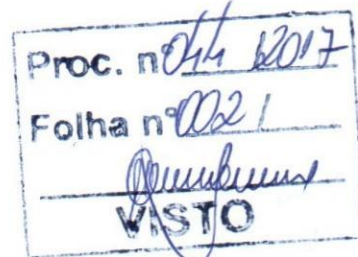 Proc. nº 044 /2017
Folha nº 002 /
VISTO